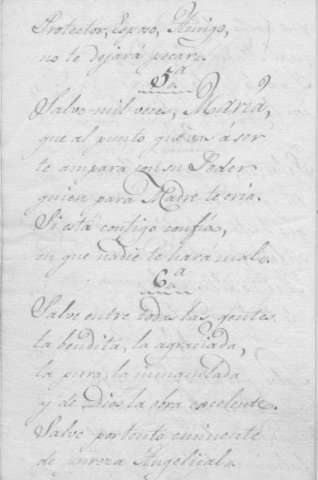 Protector, Esposo, Amigo,
no te dejará pecar.
5.a
Salve mil veces, Maria,
que al punto que vas á ser
te ampara con su Poder
quien para Madre te cria.
Si está contigo confia,
en que nadie te hara mal.
6.a
Salve entre todas las gentes
la bendita, la agraciada,
la pura, la inmaculada
y de Dios la obra excelente.
Salve portento eminente
de pureza Angelical.